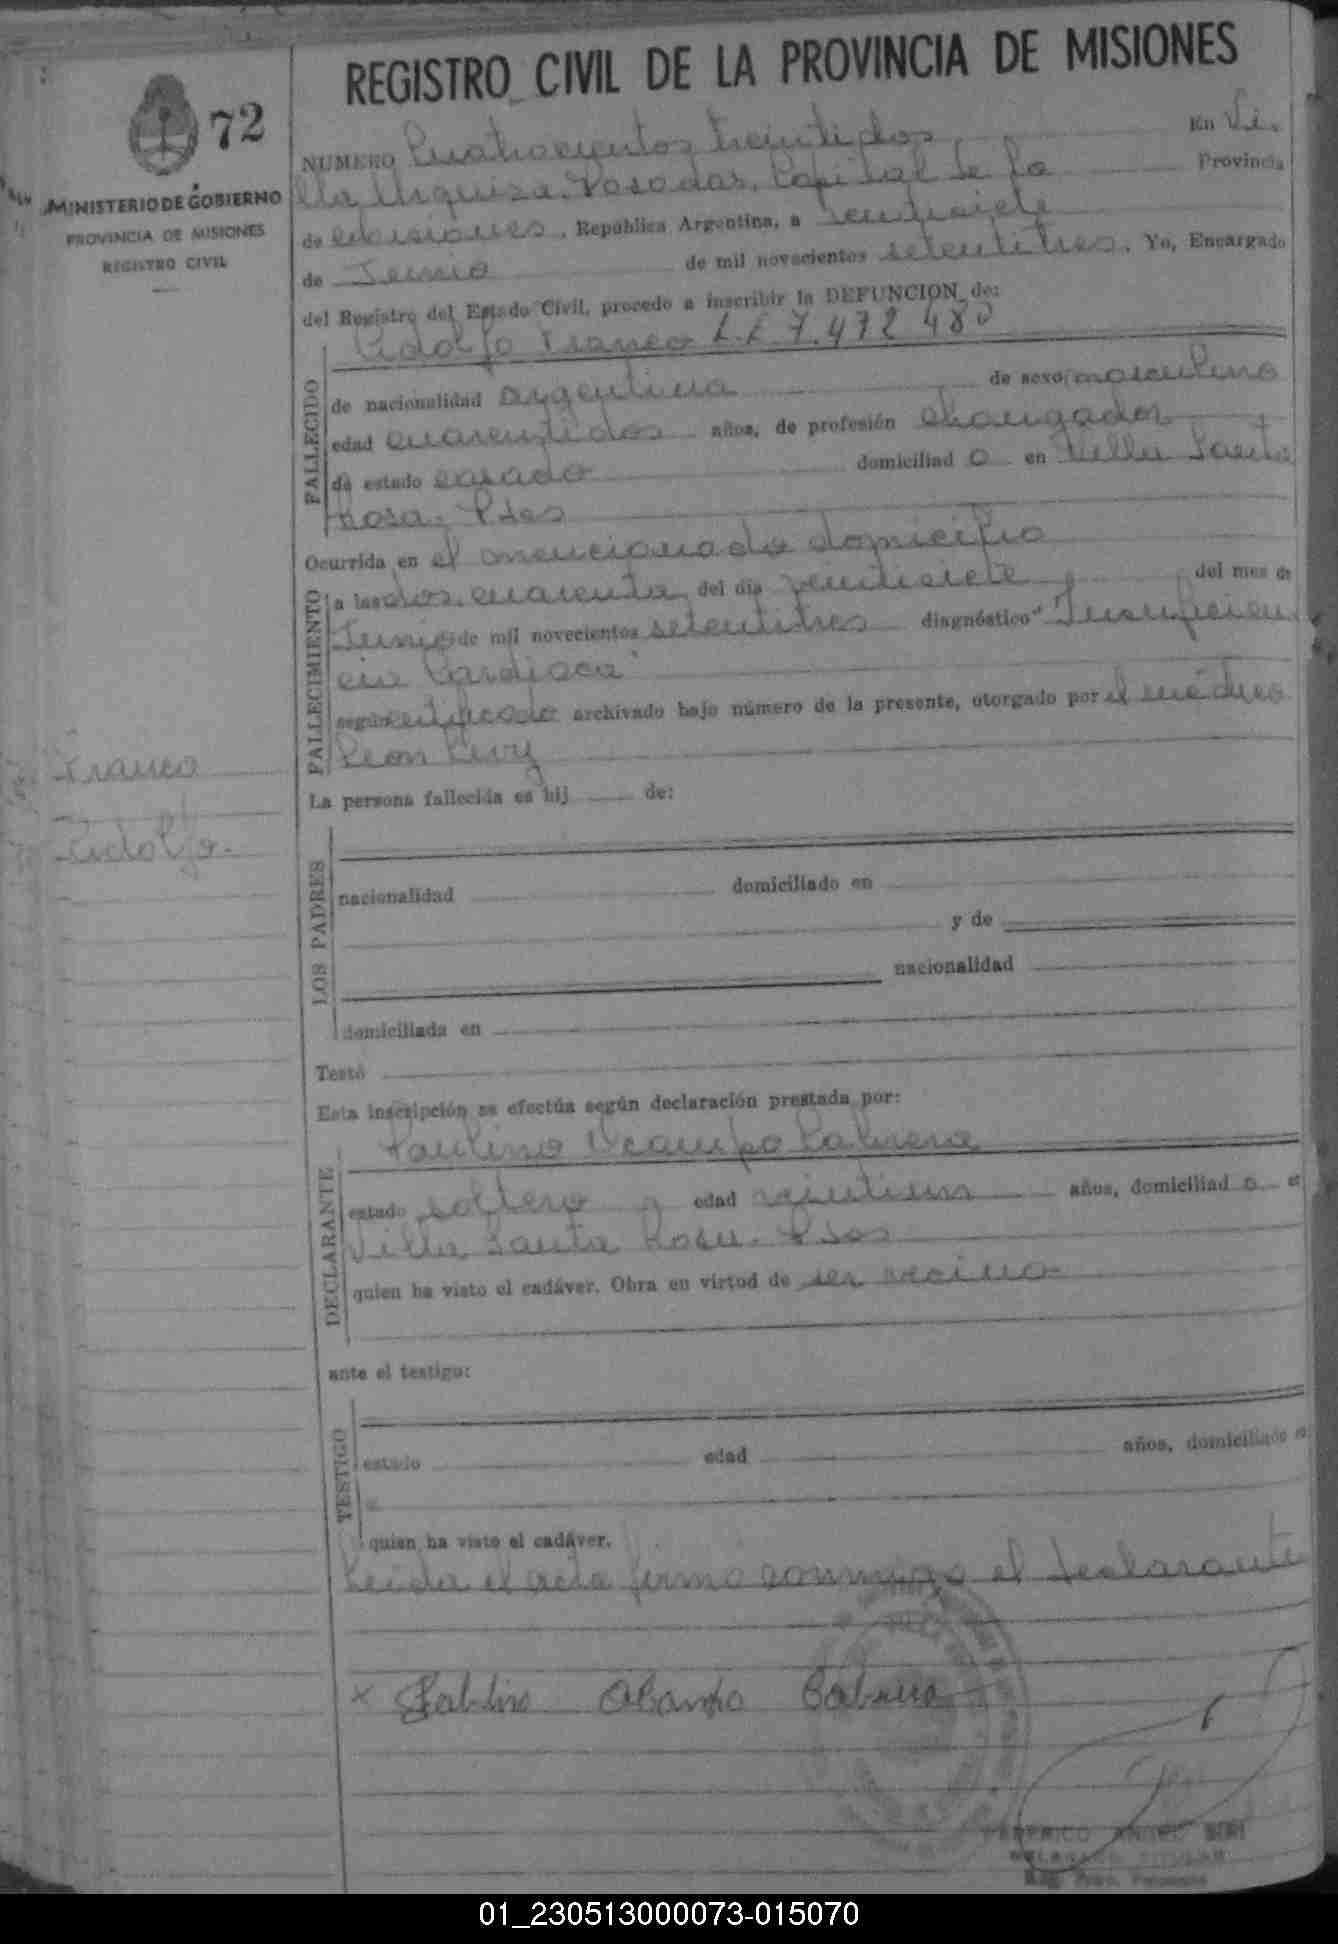 REGISTRO CIVIL DE LA PROVINCIA DE MISIONES
72
MINISTERIO DE GOBIERNO
PROVINCIA DE MISIONES
REGISTRO CIVIL
NUMERO Cuatrocientos treintidos En Vi-
lla Urquiza. Posadas, Capital de la Provincia
de Misiones, República Argentina, a veintisiete
de Junio de mil novecientos setentitres. Yo, Encargado
del Registro del Estado Civil, procedo a inscribir la DEFUNCION de:
Adolfo Franco L.E 7.472 480
FALLECIDO
de nacionalidad argentina de sexo masculino
edad cuarentidos años, de profesión changador
de estado casado domiciliad o en Villa Santa
Rosa. Pdas
Ocurrida en el mencionado domicilio
FALLECIMIENTO
a las dos, cuarenta del día veintisiete del mes de
Junio de mil novecientos setentitres diagnóstico "Insuficien
cia Cardiaca"
según certificado archivado bajo número de la presente, otorgado por el médico
Leon Levy
Franco
Adolfo.
La persona fallecida es hij de:
LOS PADRES
nacionalidad domiciliado en
y de
nacionalidad
domiciliada en
Testó
Esta inscripción se efectúa según declaración prestada por:
DECLARANTE
Paulino Ocampo Cabrera
estado soltero edad veintiun años, domiciliad o e
Villa Santa Rosa. Pdas
quien ha visto el cadáver. Obra en virtud de ser vecino
ante el testigo:
TESTIGO
estado edad años, domiciliado e
quien ha visto el cadáver.
Leida el acta firmó conmigo el declarante
x Cabrera
FEDERICO ANGEL
DELEGADO TITULAR
01_230513000073-015070